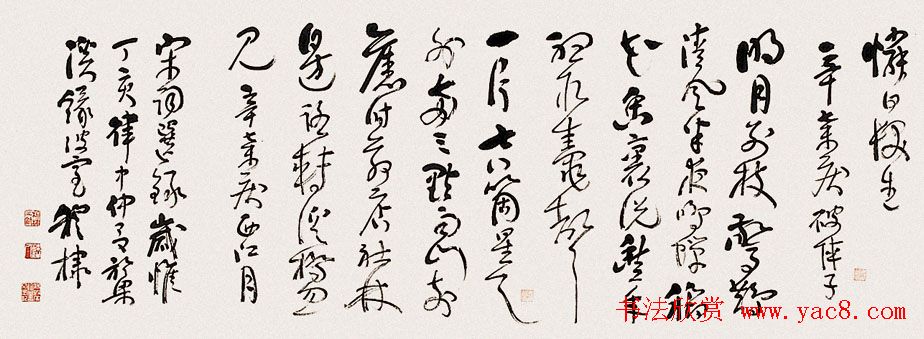 憐白髮生
辛棄疾破陣子
明月別枝驚鵲
清風半夜鳴蟬稻
花香裏說豐年
聽取蛙聲
一片七八箇星天
外兩三點雨山前
舊時茅店社林
邊路轉溪橋忽
見 辛棄疾西江月
宋詞選錄歲惟
丁亥律中仲
书法欣赏 www.yac8.com